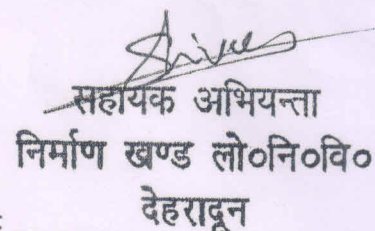 सहायक अभियन्ता
निर्माण खण्ड लो०नि०वि०
देहरादून